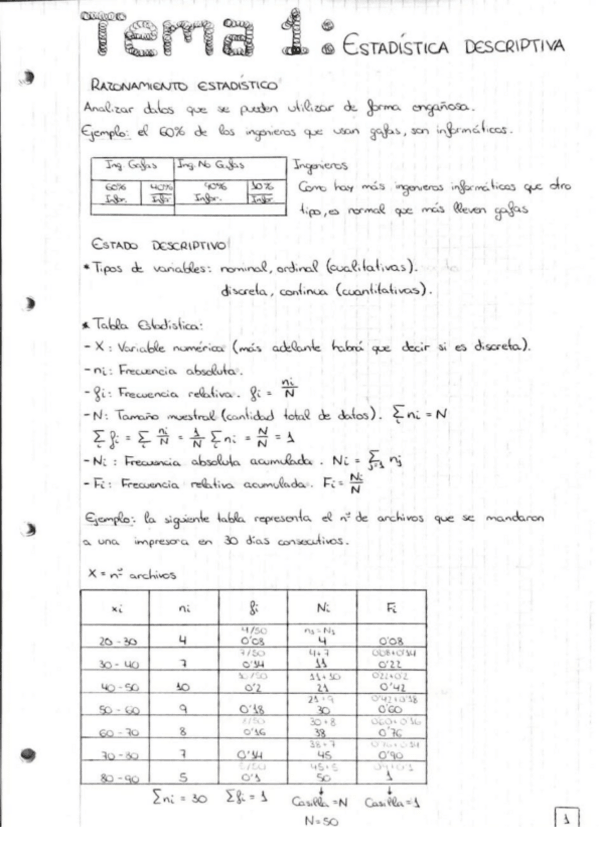 Tema 1: ESTADÍSTICA DESCRIPTIVA
RAZONAMIENTO ESTADÍSTICO
Analizar datos que se pueden utilizar de forma engañosa.
Ejemplo: el 60% de los ingenieros que usan gafas, son informáticos.
Ing Gafas Ing No Gafas Ingenieros
60% 40% 70% 30% Como hay más ingenieros informáticos que otro
Infor. Infor Infor. Infor tipo, es normal que más lleven gafas
ESTADO DESCRIPTIVO
* Tipos de variables: nominal, ordinal (cualitativas).
discreta, continua (cuantitativas).
* Tabla Estadística:
- X: Variable numérica (más adelante habrá que decir si es discreta).
- ni: Frecuencia absoluta.
- fi: Frecuencia relativa. fi = ni/N
- N: Tamaño muestral (cantidad total de datos). Σ ni = N
Σ fi = Σ ni/N = 1/N Σ ni = N/N = 1
- Ni: Frecuencia absoluta acumulada. Ni = Σ j=1 nj
- Fi: Frecuencia relativa acumulada. Fi = Ni/N
Ejemplo: la siguiente tabla representa el nº de archivos que se mandaron
a una impresora en 30 días consecutivos.
X = nº archivos
xi ni fi Ni Fi
4/50 n1=N1
20-30 4 0'08 4 0'08
7/50 4+7 0'08+0'14
30-40 7 0'14 11 0'22
10/50 11+10 0'22+0'2
40-50 10 0'2 21 0'42
21+9 0'42+0'18
50-60 9 0'18 30 0'60
30+8 0'60+0'16
60-70 8 0'16 38 0'76
38+7 0'76+0'14
70-80 7 0'14 45 0'90
5/50 45+5
80-90 5 0'1 50 1
Σni = 30 Σfi = 1 Casilla = N Casilla = 1
N = 50
1